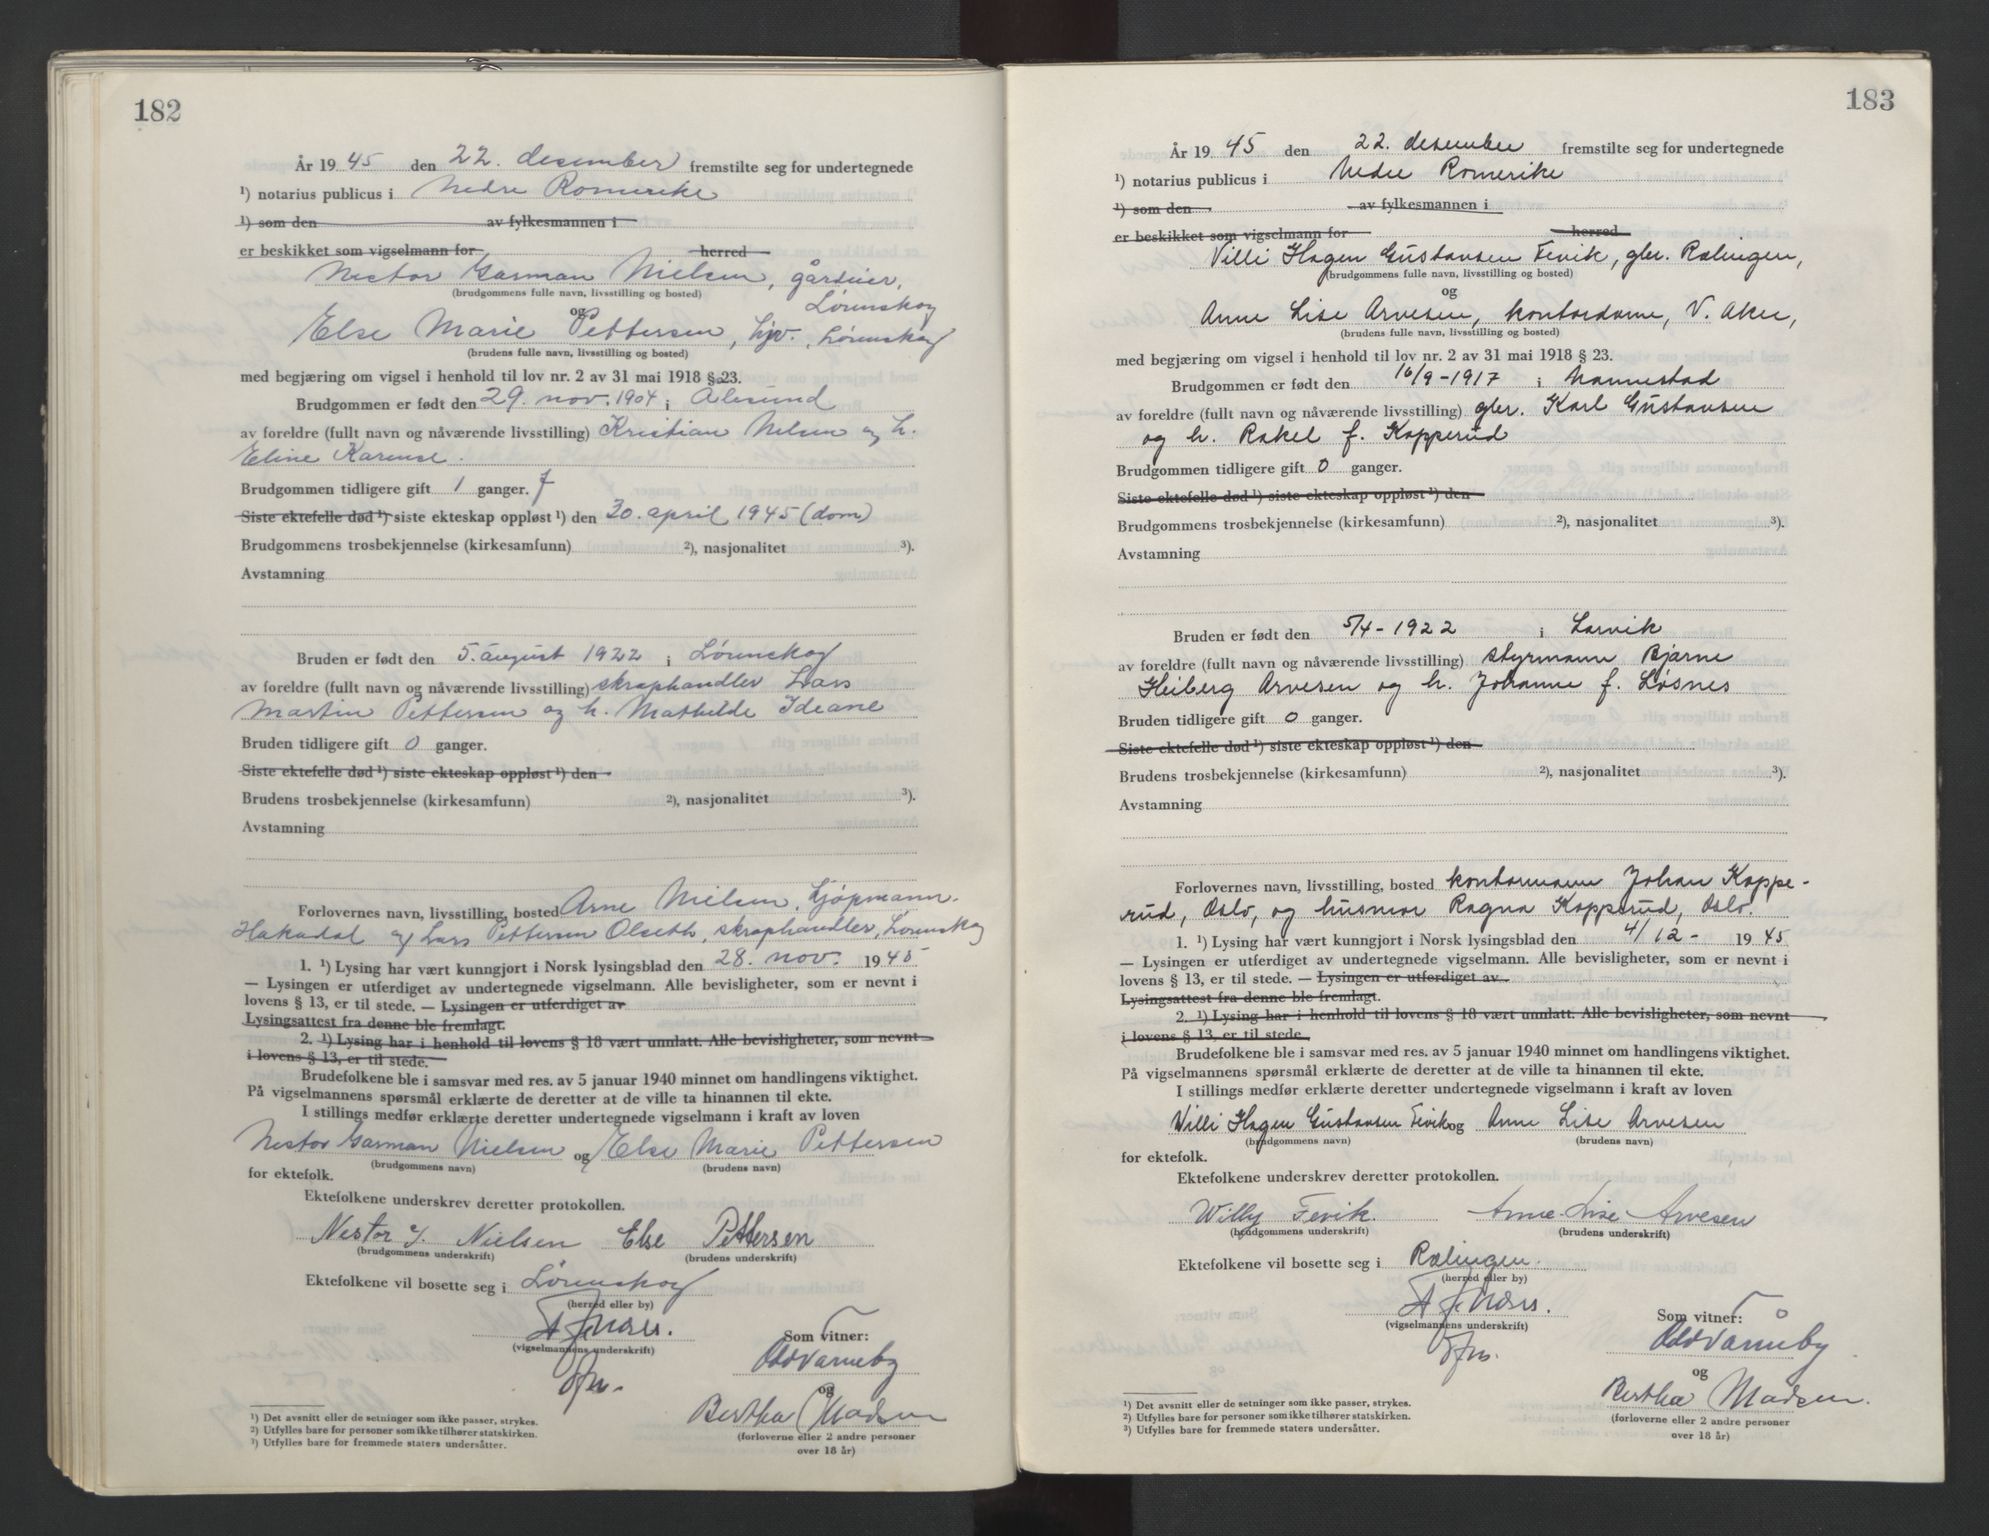 182
År 19 45 den 22. desember fremstilte seg for undertegnede
¹) notarius publicus i Nedre Romerike
¹) som den av fylkesmannen i
er beskikket som vigselmann for herred
Nestor Garman Nielsen, gårdeier,
(brudgommens fulle navn, livsstilling og bosted)
Lørenskog
og
Else Marie Pettersen, hjv., Lørenskog
(brudens fulle navn, livsstilling og bosted)
med begjæring om vigsel i henhold til lov nr. 2 av 31 mai 1918 § 23.
Brudgommen er født den 29. nov. 1904 i Ålesund
av foreldre (fullt navn og nåværende livsstilling) Kristian Nelsen og h.
Eline Karense.
Brudgommen tidligere gift 1 ganger. f
Siste ektefelle død ¹) siste ekteskap oppløst ¹) den 30. april 1945 (dom)
Brudgommens trosbekjennelse (kirkesamfunn) ²), nasjonalitet ³).
Avstamning
Bruden er født den 5. august 1922 i Lørenskog
av foreldre (fullt navn og nåværende livsstilling) skraphandler Lars
Martin Pettersen og h. Mathilde Ideane
Bruden tidligere gift 0 ganger.
Siste ektefelle død ¹) siste ekteskap oppløst ¹) den
Brudens trosbekjennelse (kirkesamfunn) ²), nasjonalitet ³).
Avstamning
Forlovernes navn, livsstilling, bosted Arne Nielsen, kjøpmann.
Hakadal og Lars Pettersen Olseth, skraphandler, Lørenskog
1. ¹) Lysing har vært kunngjort i Norsk lysingsblad den 28. nov. 19 45
— Lysingen er utferdiget av undertegnede vigselmann. Alle bevisligheter, som er nevnt i
lovens § 13, er til stede. — Lysingen er utferdiget av
Lysingsattest fra denne ble fremlagt.
2. ¹) Lysing har i henhold til lovens § 18 vært unnlatt. Alle bevisligheter, som nevnt
i lovens § 13, er til stede.
Brudefolkene ble i samsvar med res. av 5 januar 1940 minnet om handlingens viktighet.
På vigselmannens spørsmål erklærte de deretter at de ville ta hinannen til ekte.
I stillings medfør erklærte deretter undertegnede vigselmann i kraft av loven
Nestor Garman Nielsen og Else Marie Pettersen
(brudgommens navn) (brudens navn)
for ektefolk.
Ektefolkene underskrev deretter protokollen.
Nestor G. Nielsen Else Pettersen
(brudgommens underskrift) (brudens underskrift)
Ektefolkene vil bosette seg i Lørenskog
(herred eller by)
(vigselmannens underskrift)
Som vitner:
Odd Vaneby
og
Bertha Madsen
(forloverne eller 2 andre personer
over 18 år)
¹) Det avsnitt eller de setninger som ikke passer, strykes.
²) Utfylles bare for personer som ikke tilhører statskirken.
³) Utfylles bare for fremmede staters undersåtter.
183
År 19 45 den 22. desember fremstilte seg for undertegnede
¹) notarius publicus i Nedre Romerike
¹) som den av fylkesmannen i
er beskikket som vigselmann for herred
Villi Hagen Gustavsen Fevik, gbr. Rælingen,
(brudgommens fulle navn, livsstilling og bosted)
og
Anne Lise Arvesen, kontordame, V. Aker,
(brudens fulle navn, livsstilling og bosted)
med begjæring om vigsel i henhold til lov nr. 2 av 31 mai 1918 § 23.
Brudgommen er født den 16/9-1917 i Nannestad
av foreldre (fullt navn og nåværende livsstilling) gbr. Karl Gustavsen
og h. Rakel f. Kopperud
Brudgommen tidligere gift 0 ganger.
Siste ektefelle død ¹) siste ekteskap oppløst ¹) den
Brudgommens trosbekjennelse (kirkesamfunn) ²), nasjonalitet ³).
Avstamning
Bruden er født den 5/4-1922 i Larvik
av foreldre (fullt navn og nåværende livsstilling) styrmann Bjarne
Heiberg Arvesen og h. Johanne f. Løsnes
Bruden tidligere gift 0 ganger.
Siste ektefelle død ¹) siste ekteskap oppløst ¹) den
Brudens trosbekjennelse (kirkesamfunn) ²), nasjonalitet ³).
Avstamning
Forlovernes navn, livsstilling, bosted kontormann Johan Koppe-
rud, Oslo, og husmor Ragna Kopperud, Oslo.
1. ¹) Lysing har vært kunngjort i Norsk lysingsblad den 4/12- 19 45
— Lysingen er utferdiget av undertegnede vigselmann. Alle bevisligheter, som er nevnt i
lovens § 13, er til stede. — Lysingen er utferdiget av
Lysingsattest fra denne ble fremlagt.
2. ¹) Lysing har i henhold til lovens § 18 vært unnlatt. Alle bevisligheter, som nevnt
i lovens § 13, er til stede.
Brudefolkene ble i samsvar med res. av 5 januar 1940 minnet om handlingens viktighet.
På vigselmannens spørsmål erklærte de deretter at de ville ta hinannen til ekte.
I stillings medfør erklærte deretter undertegnede vigselmann i kraft av loven
Villi Hagen Gustavsen Fevik og Anne Lise Arvesen
(brudgommens navn) (brudens navn)
for ektefolk.
Ektefolkene underskrev deretter protokollen.
Willy Fevik. Anne-Lise Arvesen
(brudgommens underskrift) (brudens underskrift)
Ektefolkene vil bosette seg i Rælingen.
(herred eller by)
(vigselmannens underskrift)
Som vitner:
Odd Våneby
og
Bertha Madsen.
(forloverne eller 2 andre personer
over 18 år)
¹) Det avsnitt eller de setninger som ikke passer, strykes.
²) Utfylles bare for personer som ikke tilhører statskirken.
³) Utfylles bare for fremmede staters undersåtter.